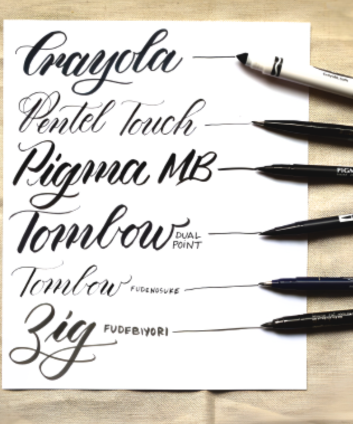 Crayola
Pentel Touch
Pigma MB
Tombow DUAL
POINT
Tombow FUDENOSUKE
Zig FUDEBIYORI